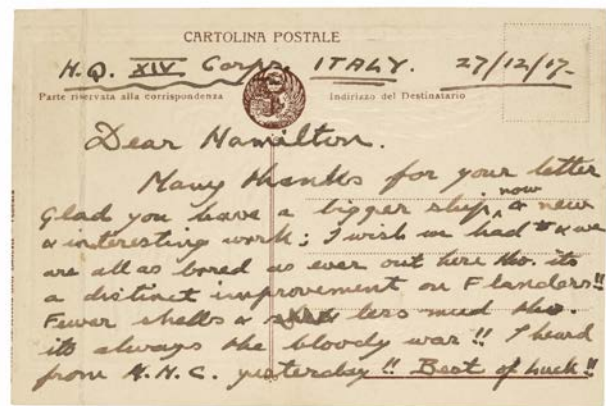 CARTOLINA POSTALE
H.Q. XIV Corps, ITALY. 27/12/17-
Parte riservata alla corrispondenza Indirizzo del Destinatario
Dear Hamilton.
Many thanks for your letter
now
Glad you have a bigger ship, & new
& interesting work; I wish we had & we
are all as bored as ever out here tho. its
a distinct improvement on Flanders!!
Fewer shells & less mud tho.
its always the bloody war!! I heard
from H.H.C. yesterday!! Best of luck!!